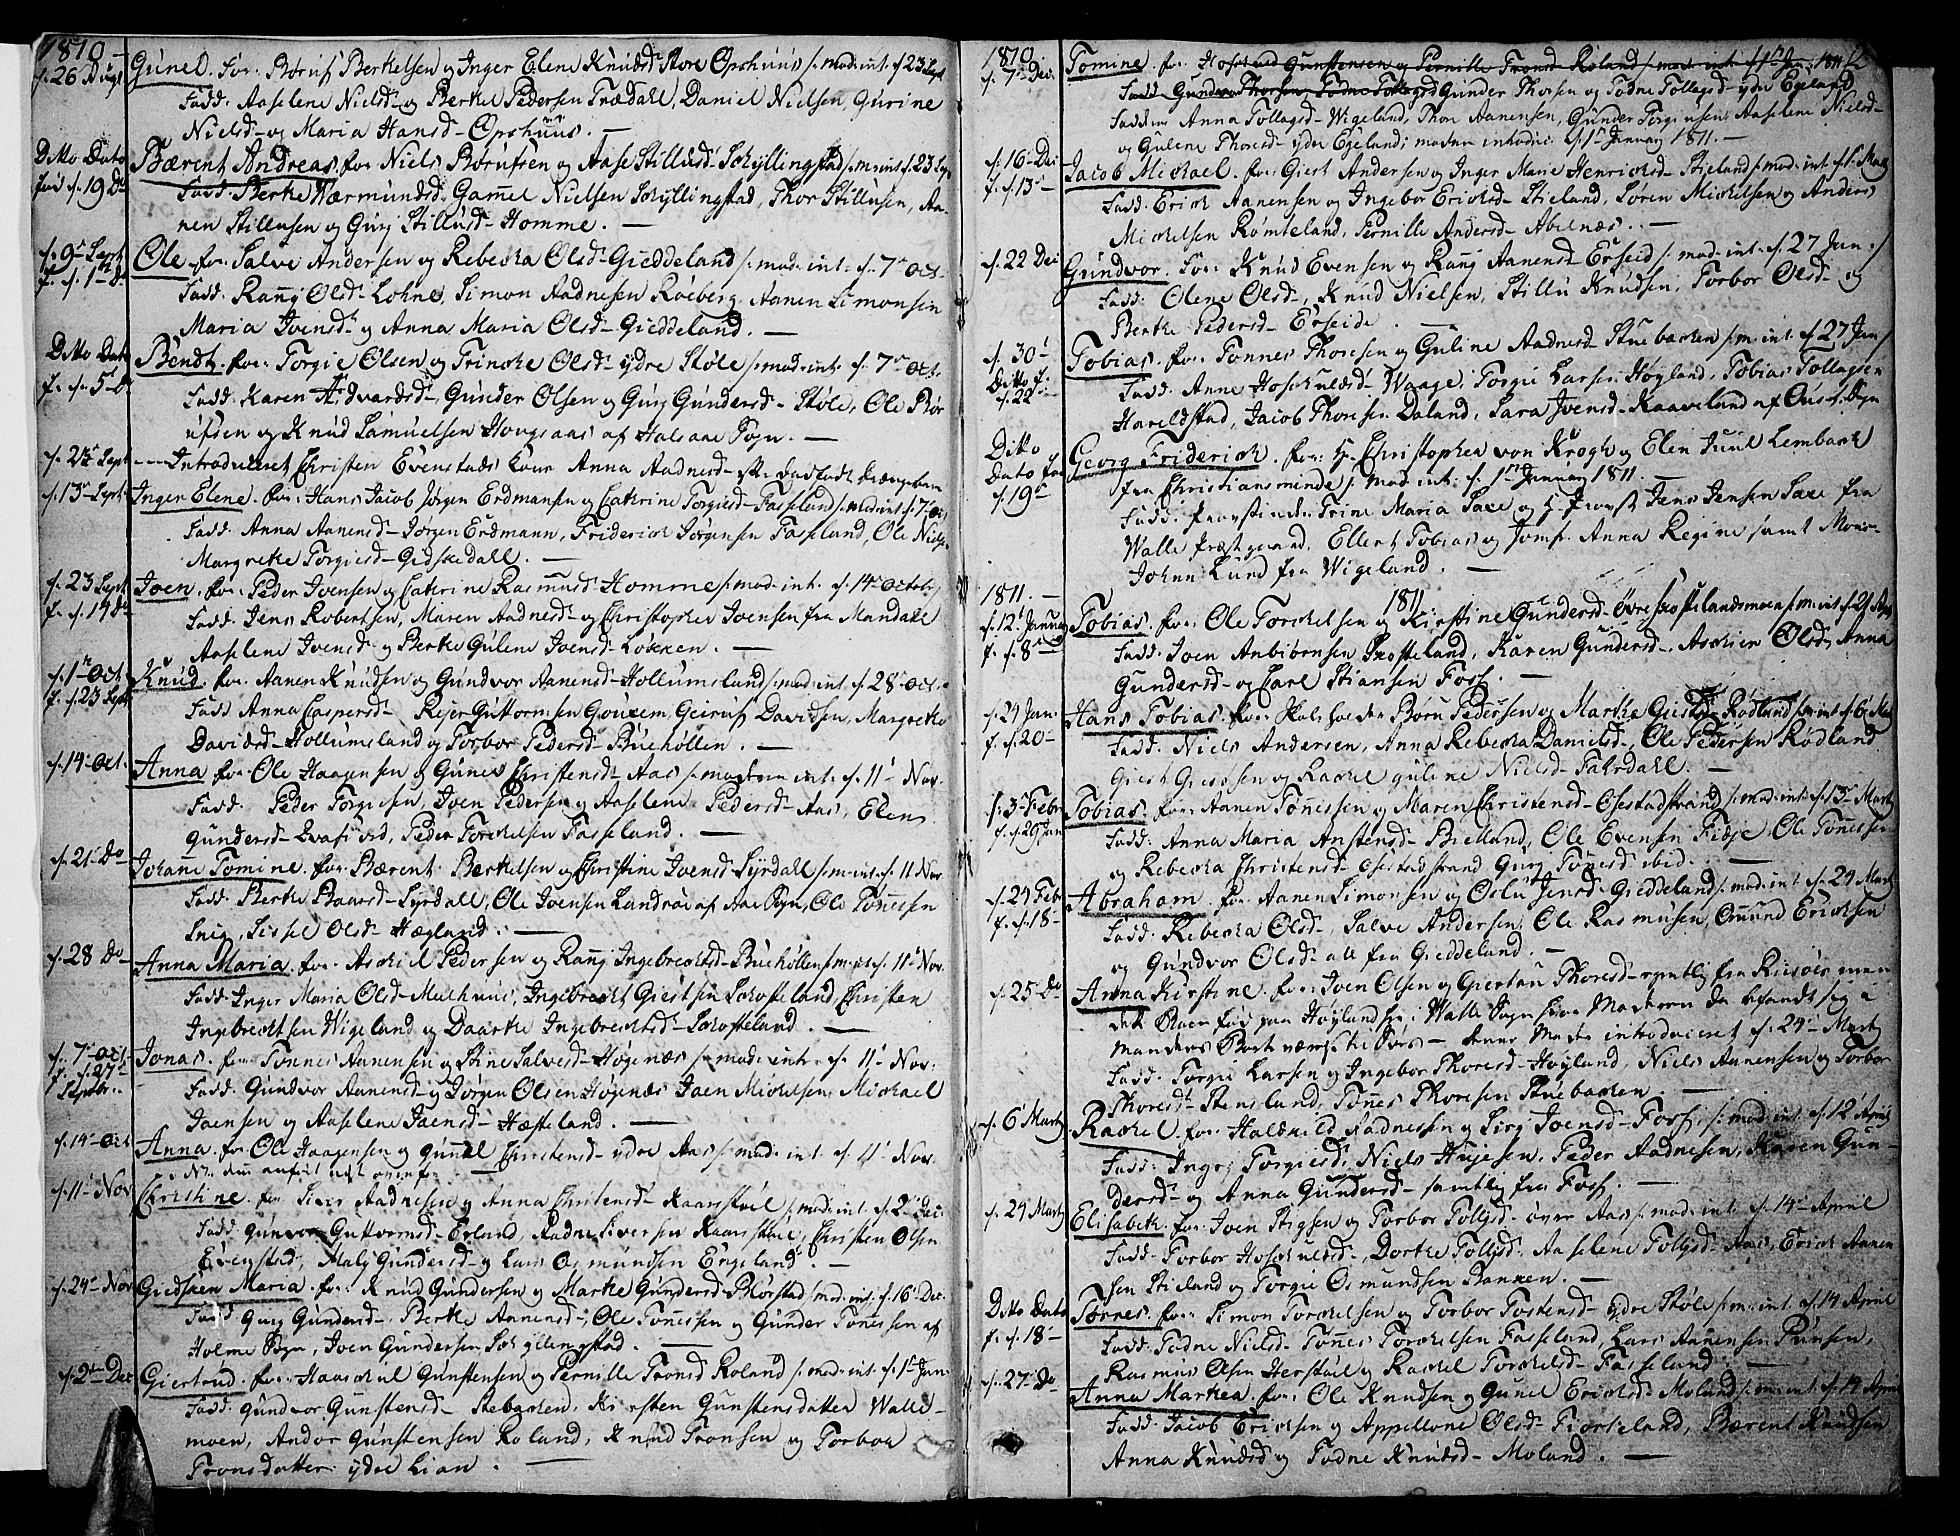 1810
d. 26 Aug Gunel. for: Børuf Berthelsen og Inger Elene Knudsd Store Opshuus /: mod: int: d. 23 Sept
Fadd: Aaselene Nielsd og Berthe Pedersen Trædahl, Daniel Nielsen, Gurine
Nielsd og Maria Hansd Opshuus. —
Ditto Dato Bærent Andreas. for: Niels Børufsen og Aase Stillusd Schyllingstad /: m: int: d. 23 Sept
fød d. 19 Do
Fadd: Berthe Wærmundsd, Gamel Nielsen Schyllingstad, Thor Stillusen, Aa-
nen Stillusen og Gurj Stillusd Homme. —
d. 9 Sept Ole. for: Salve Andersen og Rebecka Olsd Gieddeland /: mod: int: d. 7 Oct
f. d. 1 Do
Fadd: Ranj Olsd Lohne, Simon Aadnesen Røeberg, Aanen Simonsen
Maria Joensd og Anna Maria Olsd Gieddeland. —
Ditto Dato Bendt. for: Torgie Olsen og Trincke Olsd ydre Skøle /: mod: int: d. 7 Oct
f. d. 5 Do
Fadd: Karen Aedvardsd, Gunder Olsen og Gurj Gundersd Skøle, Ole Bør
ufsen og Knud Samuelsen Hougsaas af Halsaae Sogn. —
d. 23 Sept — Introduceret Christen Evenstads Kone Anna Aadnesd
d. 13 Sept Inger Elene. for: Hans Jacob Jørgen Erdmansen og Cathrine Torgiesd Fasseland /: mod: int: d. 7 Oct
Fadd: Anna Aanensd Jørgen Erdmann, Friderich Jørgensen Fasseland, Ole Niels
Margrethe Torgiesd Gidskedall. —
d. 23 Sept Joen. for: Peder Joensen og Cathrine Rasmusd Homme /: mod: int: d. 14 Octobr
f. d. 14 Do
Fadd: Jens Robertsen, Maren Aadnesd og Christopher Joensen fra Mandale
Aaselene Joensd og Berthe Gulene Joensd Løkken. —
d. 1 Oct Knud. for: Aanen Knudsen og Gundvor Aanensd Hollumsland /: mod: int: d. 28 Oct
f. d. 23 Sept
Fadd Anna Caspersd Rejer Guttormsen Gouxem, Geiruf Davidsen, Margrethe
Davidsd Hollumsland og Torbor Pedersd Buehøllen. —
d. 14 Oct. Anna for: Ole Haagensen og Gunel Christensd Aas /: moderen int: d. 11 Nov.
Fadd: Peder Torgiesen, Joen Pedersen og Aaselene Pedersd Aas, Elen
Gundersd, Peder Torkelsen Fasseland. —
d. 21 Do Johane Tomine. for: Bærent Berthelsen og Christine Joensd Syrdall /: m: int: d. 11 Nov.
Fadd: Berthe Baarsd Syrdall, Ole Joensen Landrøe af Aae Sogn, Ole Tønesen
Snig, Sissel Olsd Hægland. —
d. 28 Do Anna Maria. for: Asckiel Pedersen og Ranj Ingebrecktsd Buehøllen /: m: int: d. 11 Nov.
Fadd: Inger Maria Olsd, Ingebreckt Giertsen Schofteland, Christen
Ingebrecktsen Wigeland og Daarthe Ingebrecktsd Schofteland. —
d. 7 Oct Jonas. for: Tønnes Aanensen og Stine Salvesd Høgenæs /: mod: int: d. 11 Nov:
f. d. 27
Septbr.
Fadd: Gundvor Aanensd og Jørgen Olsen Høgenæs Joen Mickelsen, Mickael
Joensen og Aaselene Joensd Hæfteland. —
d. 14 Oct Anna. for Ole Haagensen og Gunnel Christensd ydre Aas /: mod: int: d. 11 Nov.
d. 11 Nov Christine. for Siver Aadnesen og Anna Christensd Kaarstøel /: mod: int. d. 2 Dec:
Fadd: Gunvor Guttormsd Erland, Aadne Siversen Kaarstøel, Christen Olsen
Evenstad, Malj Gundersd og Lars Osmundsen Engeland. —
d. 24 Nov Giedsken Maria. for: Knud Gundersen og Marthe Gundersd Blørstad /: mod: int. d. 16 Dec.
Fadd Gurj Gundersd, Berthe Aanensd, Ole Tønessen og Gunder Tønessen af
Holme Sogn, Joen Gundersen Schyllingstad. —
d. 2 Dec Giertrud. for: Haaschul Gunstensen og Pernille Tronsd Roland /: mod: int: d. 1 Jan
Fadd: Gundvor Gunstensd Stebacken, Kirsten Gunstensdatter Walle-
moen, Andor Gunstensen Roland, Knud Tronsen og Torbor
Tronsdatter ydre Lian. —
1810
d. 7 Dec. Tomine. for: Hoschuld Gunstensen og Pernille Tronsd Roland /: mod: int: d. 1 Jan. 1811
Fadd Gundvor Thorsen Todne Tollagsd Gunder Thorsen og Todne Tollagsd ydre Egeland
Faddere Anna Tollagsd Wigeland, Thor Aanensen, Gunder Torgiusen, Aaselene Nielsd
og Gulene Thoresd ydre Egeland: moderen introduc: d. 1 Januarj 1811. —
d. 16 Dec Jacob Mickael. for: Giert Andersen og Inger Marie Henricksd Stieland /: mod: int. d. 1 Martj
f. d. 13
Fadd: Erick Aanensen og Ingebor Ericksd Stieland, Søren Mickelsen og Anders
Mickelsen Rømteland, Pernille Andersd Abelnæs. —
d. 22 Dec Gundvor. for: Knud Evensen og Ranj Aanensd Erseid /: mod: int: d. 27 Jan:
Fadd: Olene Olsd, Knud Nielsen, Stillu Knudsen, Torbor Olsd og
Berthe Pedersd Erseide. —
d. 30 Tobias. for: Tønnes Thoresen og Guline Aadnesd Stuebacken /: m: int: d. 27 Jan:
Ditto f.
d. 22
Fadd: Anne Hoschuldsd Waage, Torgie Larsen Høyland, Tobias Tollagsen
Hareldstad, Jacob Thoresen Daland, Sara Joensd Kaaveland af Øuslebøe Sogn
Ditto
Dato fød
d. 19
Georg Friderich. for: H: Christopher von Krogh og Elen Juul Lembach
fra Christiansminde /: mod: int: d. 1 Januarj 1811. —
Fadd: Provstinden Trine Maria Saxe og H: Provst Jens Jensen Saxe fra
Walle Præstgaard, Ellert Tobias og Jomf: Anna Regine samt Mons:
Johan Lund fra Wigeland. —
1811. — 1811
d. 12 Januarj Tobias. for: Ole Torckelsen og Kirstine Gundersd Øvre Skoftelandsmoen /: m: int: d. 21 Apr
f. d. 8
Fadd: Joen Anbiørnsen Skofteland, Karen Gundersd, Asckier Olsd, Anna
Gundersd og Carl Stiansen Foss. —
d. 24 Jan. Hans Tobias. for: Børu Pedersen og Marthe Giertsd Rødland /: m: int d. 6 Mart
f. d. 20
Fadd: Niels Andersen, Anna Rebecka Danielsd, Ole Pedersen Rødland
Giert Giertsen og Rackel Guline Nielsd Fahrdahl. —
d. 3 Febr Tobias. for: Aanen Tønessen og Maren Christensd Ofestadstrand /: mod: int: d. 13 Martj
f. d. 29 Jan
Fadd: Anna Maria Anstensd Bielland, Ole Evensen Fidje Ole Tønesen
og Rebecka Christensd Ofestadstrand Gurj Tønesd ibid. —
d. 24 Febr Abraham. for: Aanen Simonsen og Oslu Jensd Gieddeland /: mod: int d. 24 Martj
f. d. 18
Fadd: Rebecka Olsd, Salve Andersen, Ole Rasmusen, Omund Ericksen
og Gundvor Olsd alle fra Gieddeland. —
d. 25 Do Anna Kirstine. for: Joen Olsen og Giertru Thoresd egentlig fra Riisøer men
dette Barn fød paa Høyland her i Walle Sogn hvor Moderen da befandt sig i
Mandens Bortværelse — denne Moder introduceret d. 24 Martj
Fadd: Torgie Larsen og Ingebor Thoresd Høyland, Niels Aanensen og Torbor
Thoresd Stensland, Tønes Thoresen Stuebacken —
d. 6 Martj Rackel. for: Haldkild Aadnessen og Sirj Joensd Foss /: mod: int. d. 12 April
Fadd: Ingrj Torgiesd, Niels Hujesen, Peder Aadnesen, Karen Gun-
dersd og Anna Gundersd samtlig fra Foss. —
d. 24 Martj Elisabeth. for: Joen Stigsen og Torbor Tollisd øvre Aas /: mod: int. d. 14 April
Fadd: Torbor Hoschuldsd, Dorthe Tollisd, Aaselene Tollisd Aas, Erick Aanen
sen Stieland og Torgie Osmundsen Bancken. —
Ditto Dato Tønnes. for: Simon Torckelsen og Torbor Tostensd ydre Skøle /: m: int. d. 14 April
f. d. 18
Fadd: Todne Nielsd Tønnes Torckelsen Fasseland, Lars Aanensen
Rasmus Olsen Herstøel og Rackel Torckelsd Fasseland. —
d. 27 Do Anna Marthea. for: Ole Knudsen og Gunel Ericksd Moland /: m: int. d. 14 April
Fadd: Jacob Ericksen og Appellone Olsd Fiorkeland, Bærent Knudsen
Anna Knudsd og Todne Knudsd Moland. —